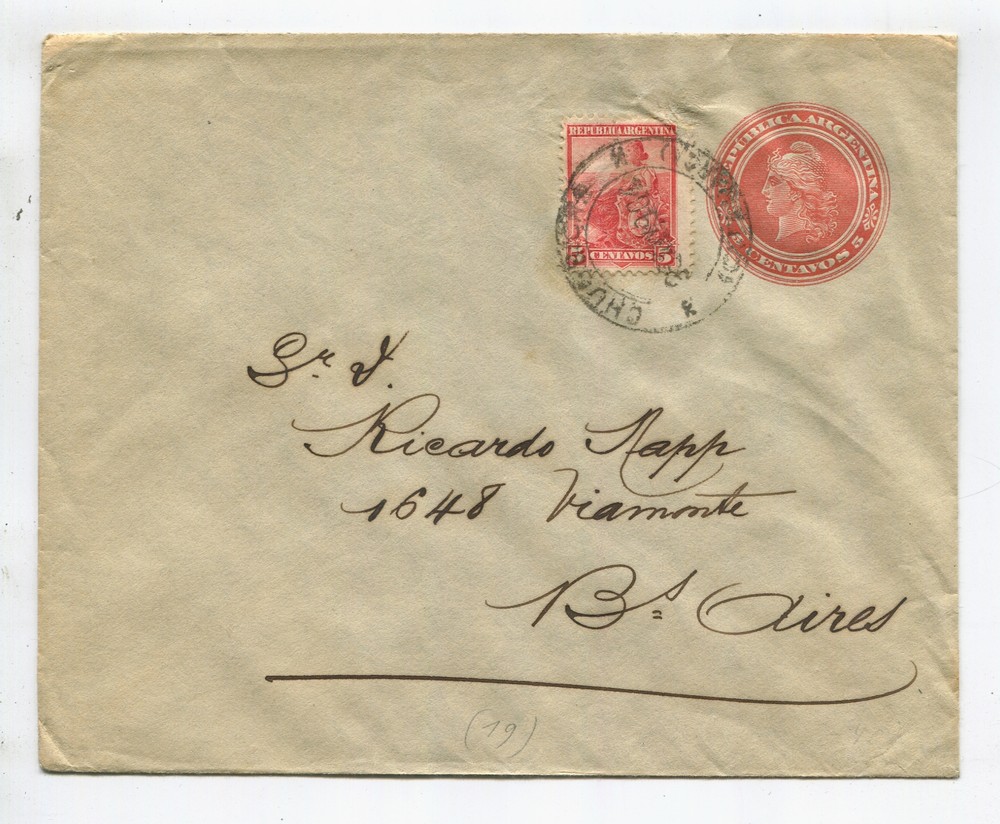 REPUBLICA ARGENTINA
CENTAVOS 5
REPUBLICA ARGENTINA
5 CENTAVOS 5
Sr. D.
Ricardo Rapp
1648 Viamonte
Bs Aires
(19)